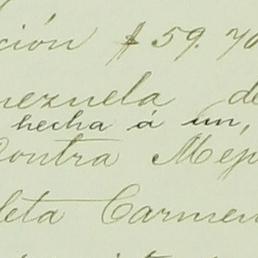 ción $59.70
nezuela de
hecha á un,
Contra Mej
leta Carmen